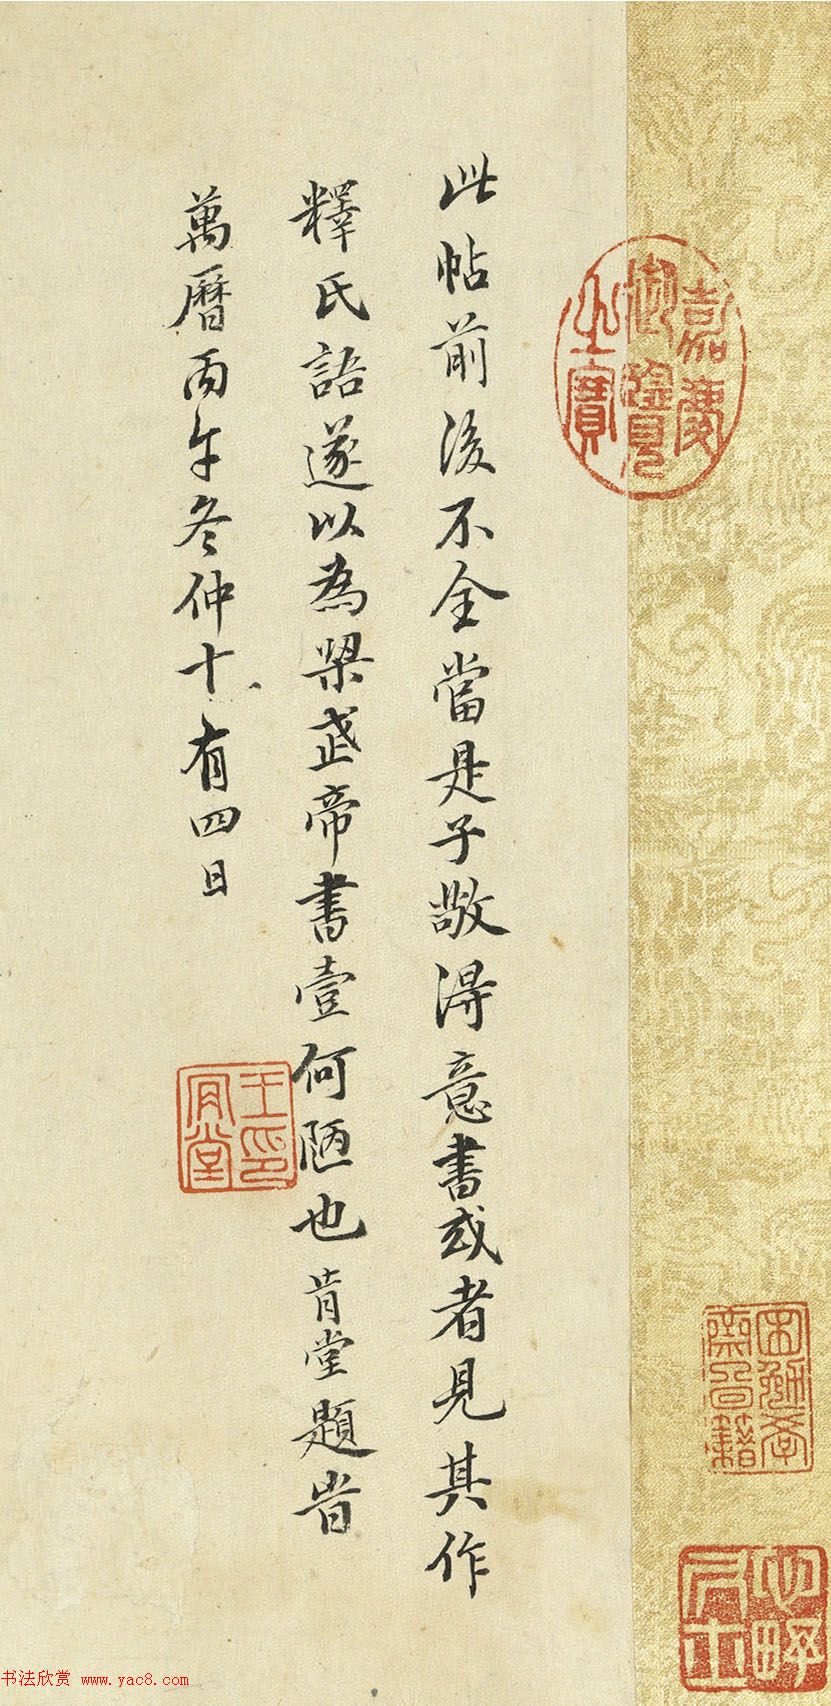 此帖前後不全當是子敬得意書或者見其作
釋氏語遂以為梁武帝書壹何陋也肯堂題眥
萬曆丙午冬仲十有四日
嘉慶
御覽
之寶
王印
肯堂
书法欣赏 www.yac8.com